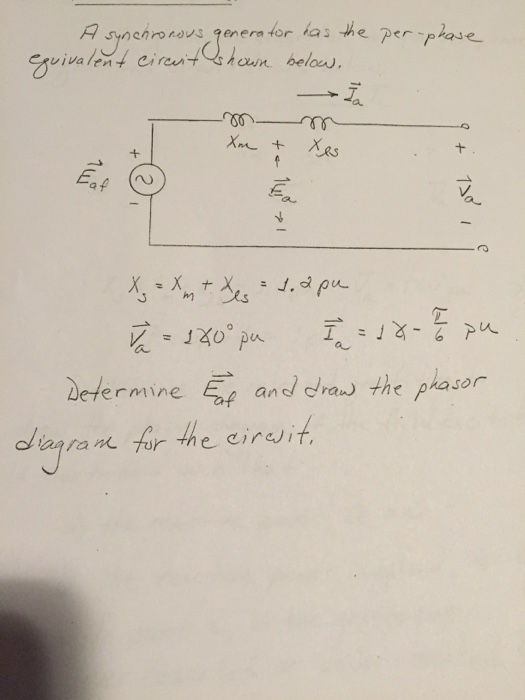 A synchronous generator has the per-phase
equivalent circuit shown below.
→ I⃗a
Xm + Xls +
+
E⃗af ~ E⃗a V⃗a
- - -
Xs = Xm + Xls = 1.2 pu
V⃗a = 1∠0° pu I⃗a = 1∠-π/6 pu
Determine E⃗af and draw the phasor
diagram for the circuit.